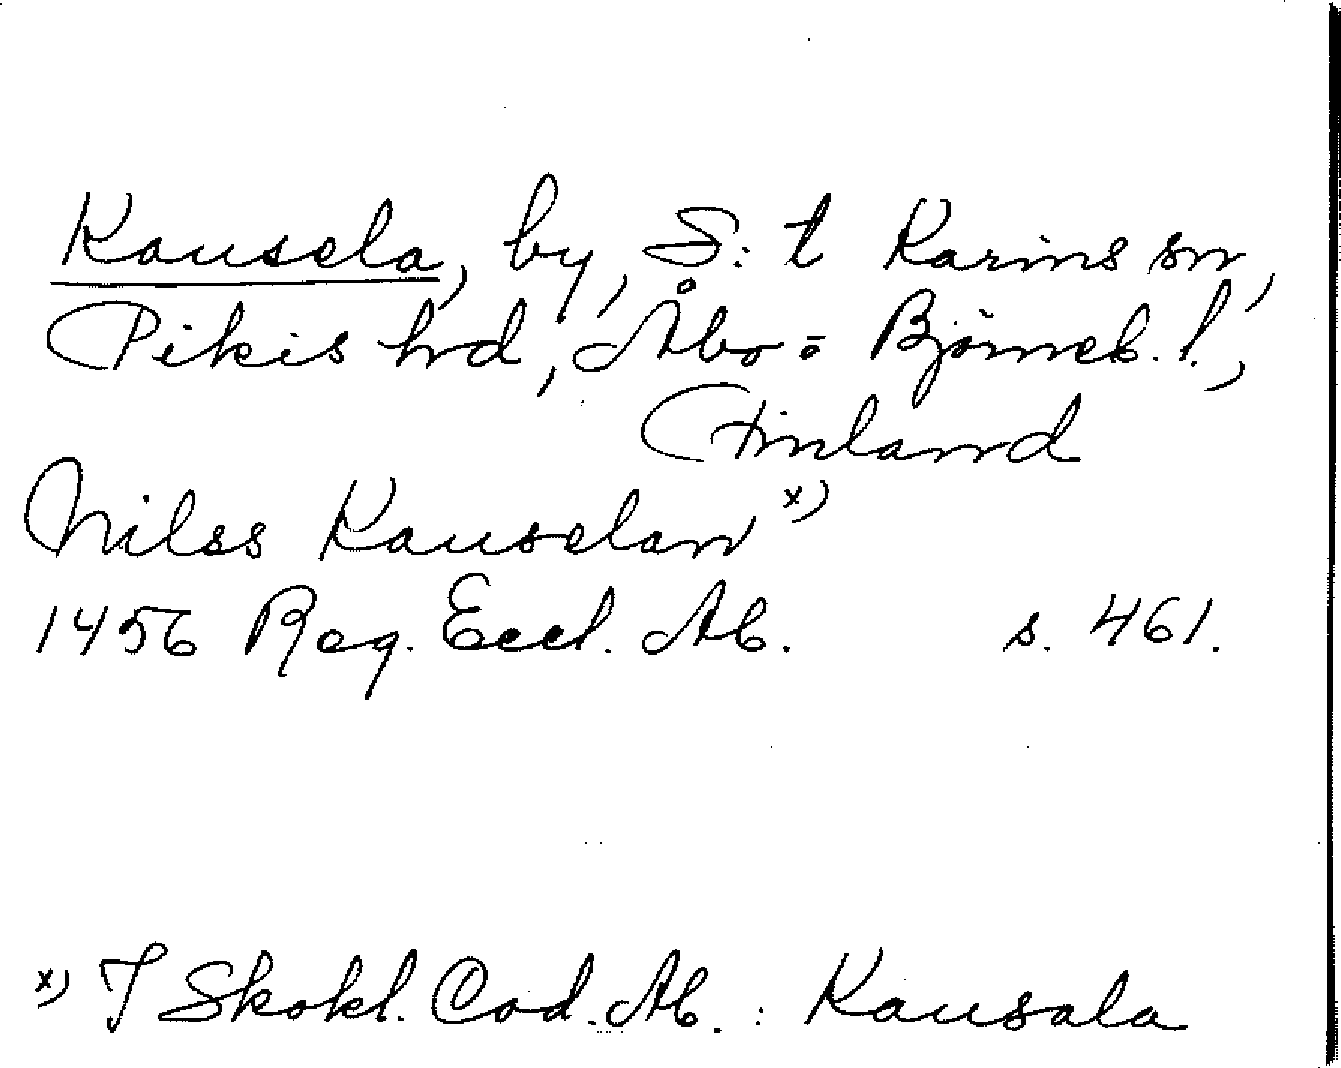 Kausela, by, S:t Karins sn,
Pikis hrd, Åbo = Björneb. l.,
Finland
Nilss Kauselan x)
1456 Reg. Eccl. Ab. s. 461.
x) I Skokl. Cod. Ab. : Kausala